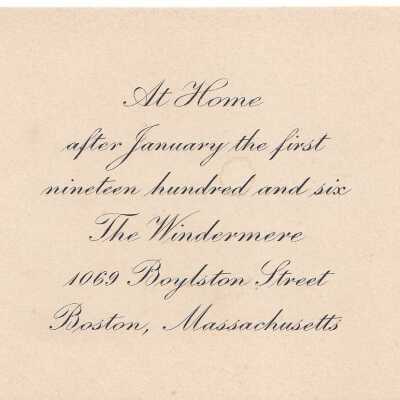 At Home
after January the first
nineteen hundred and six
The Windermere
1069 Boylston Street
Boston, Massachusetts